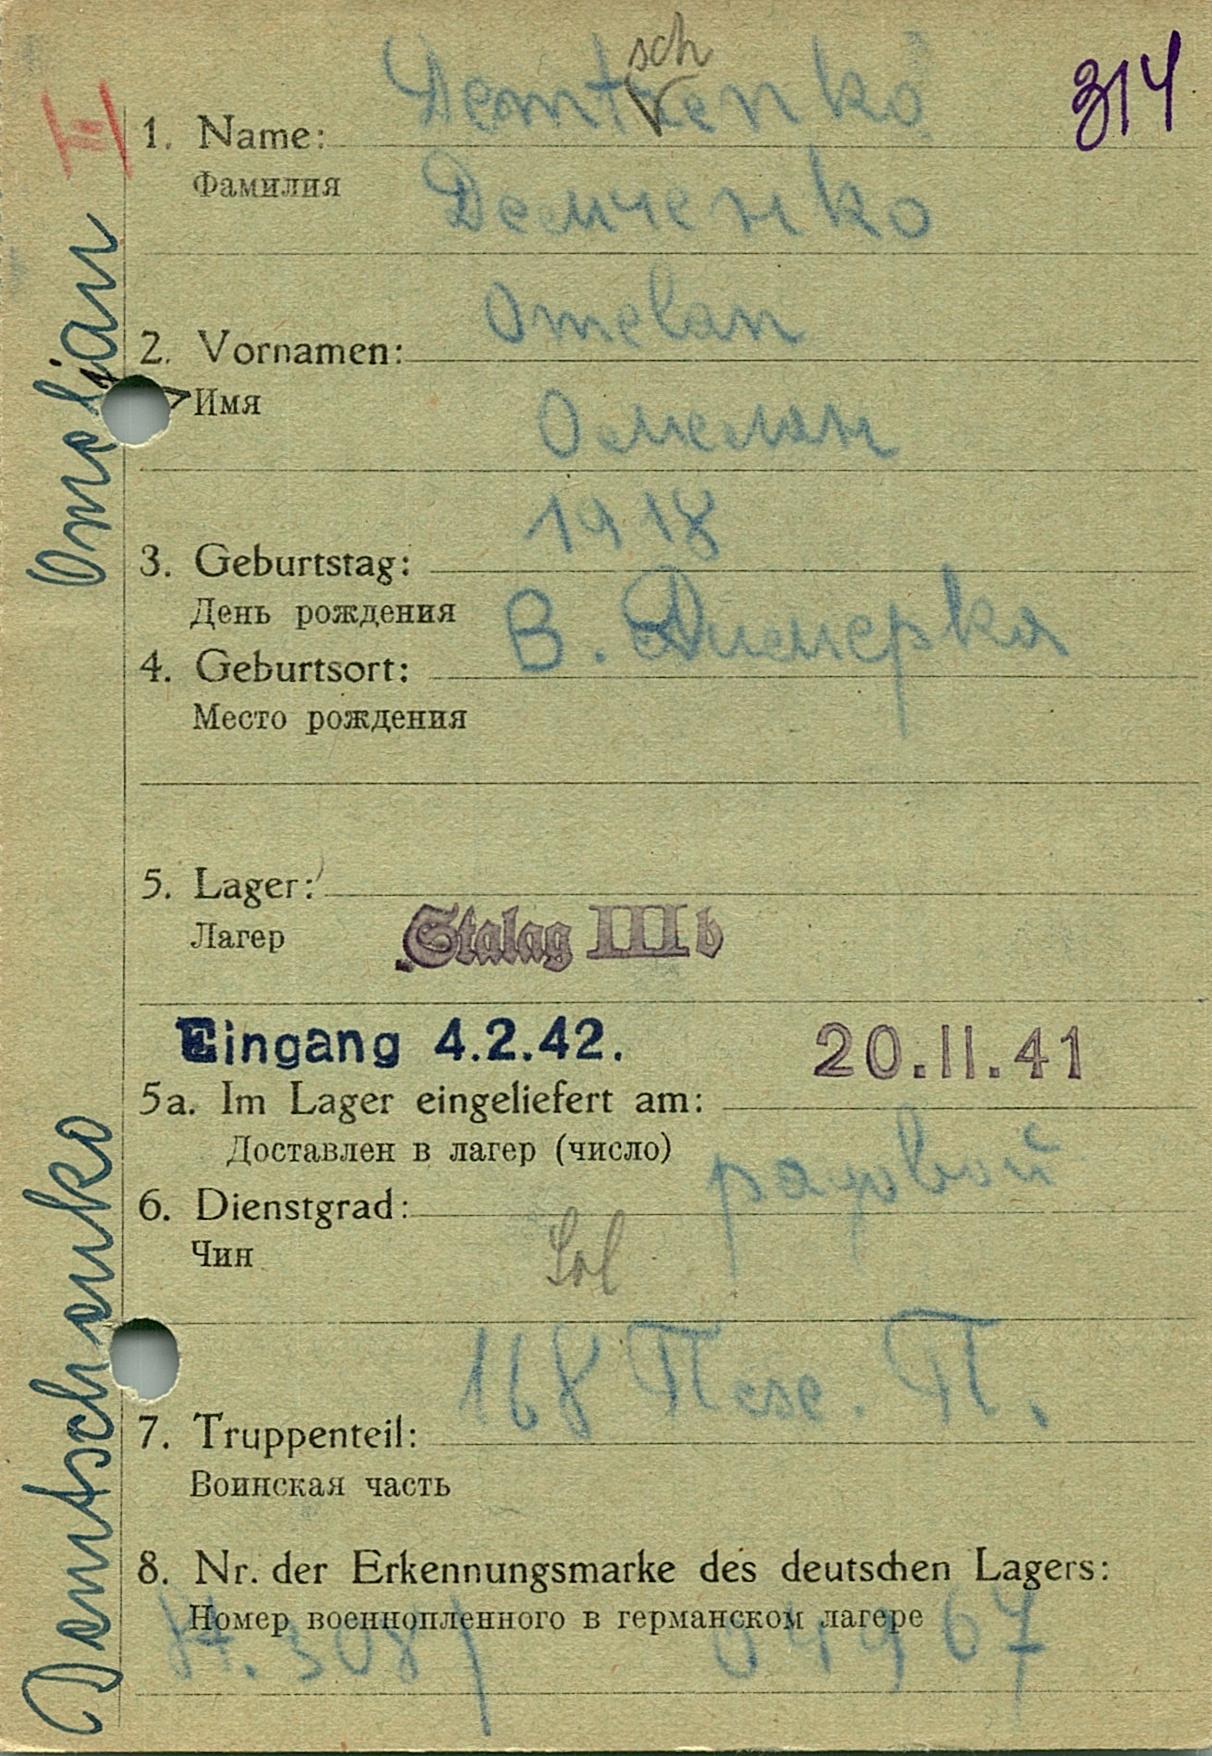 314
III
sch
1. Name: Demtzenko
Фамилия Демченко
2. Vornamen: Omelan
Имя Омелан
1918
3. Geburtstag:
День рождения
4. Geburtsort: В. Димерка
Место рождения
5. Lager:
Лагер Stalag III b
Eingang 4.2.42. 20.11.41
5a. Im Lager eingeliefert am:
Доставлен в лагер (число)
6. Dienstgrad: рядовой
Чин Sol
168
7. Truppenteil:
Воинская часть
8. Nr. der Erkennungsmarke des deutschen Lagers:
Номер военнопленного в германском лагере
04967
Demtschenko Omelian